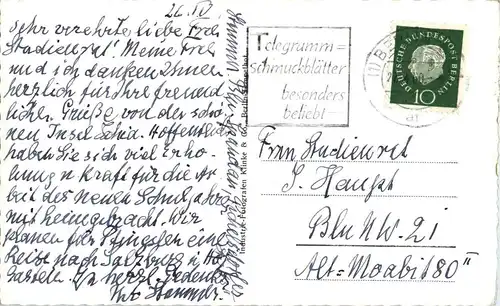 26. IV.
Sehr verehrte, liebe Frau
Studienrat! Meine Frau
und ich danken Ihnen
herzlich für Ihre freund-
lichen Grüße von der schö-
nen Insel Hoffentlich
haben Sie sich viel Erho-
lung u. Kraft für die Ar-
beit des neuen Schuljahres
mit heimgebracht. Wir
planen für Pfingsten eine
Reise nach Salzburg u. Hof-
gastein. In herzl. Gedenken
Ihr
Telegramm=
schmuckblätter
besonders
beliebt
DEUTSCHE BUNDESPOST BERLIN
10
Industrie-Fotografen Klinke & Co., Berlin
Frau Studienrat
J. Haupt
Bln NW. 21
Alt-Moabit 80 II